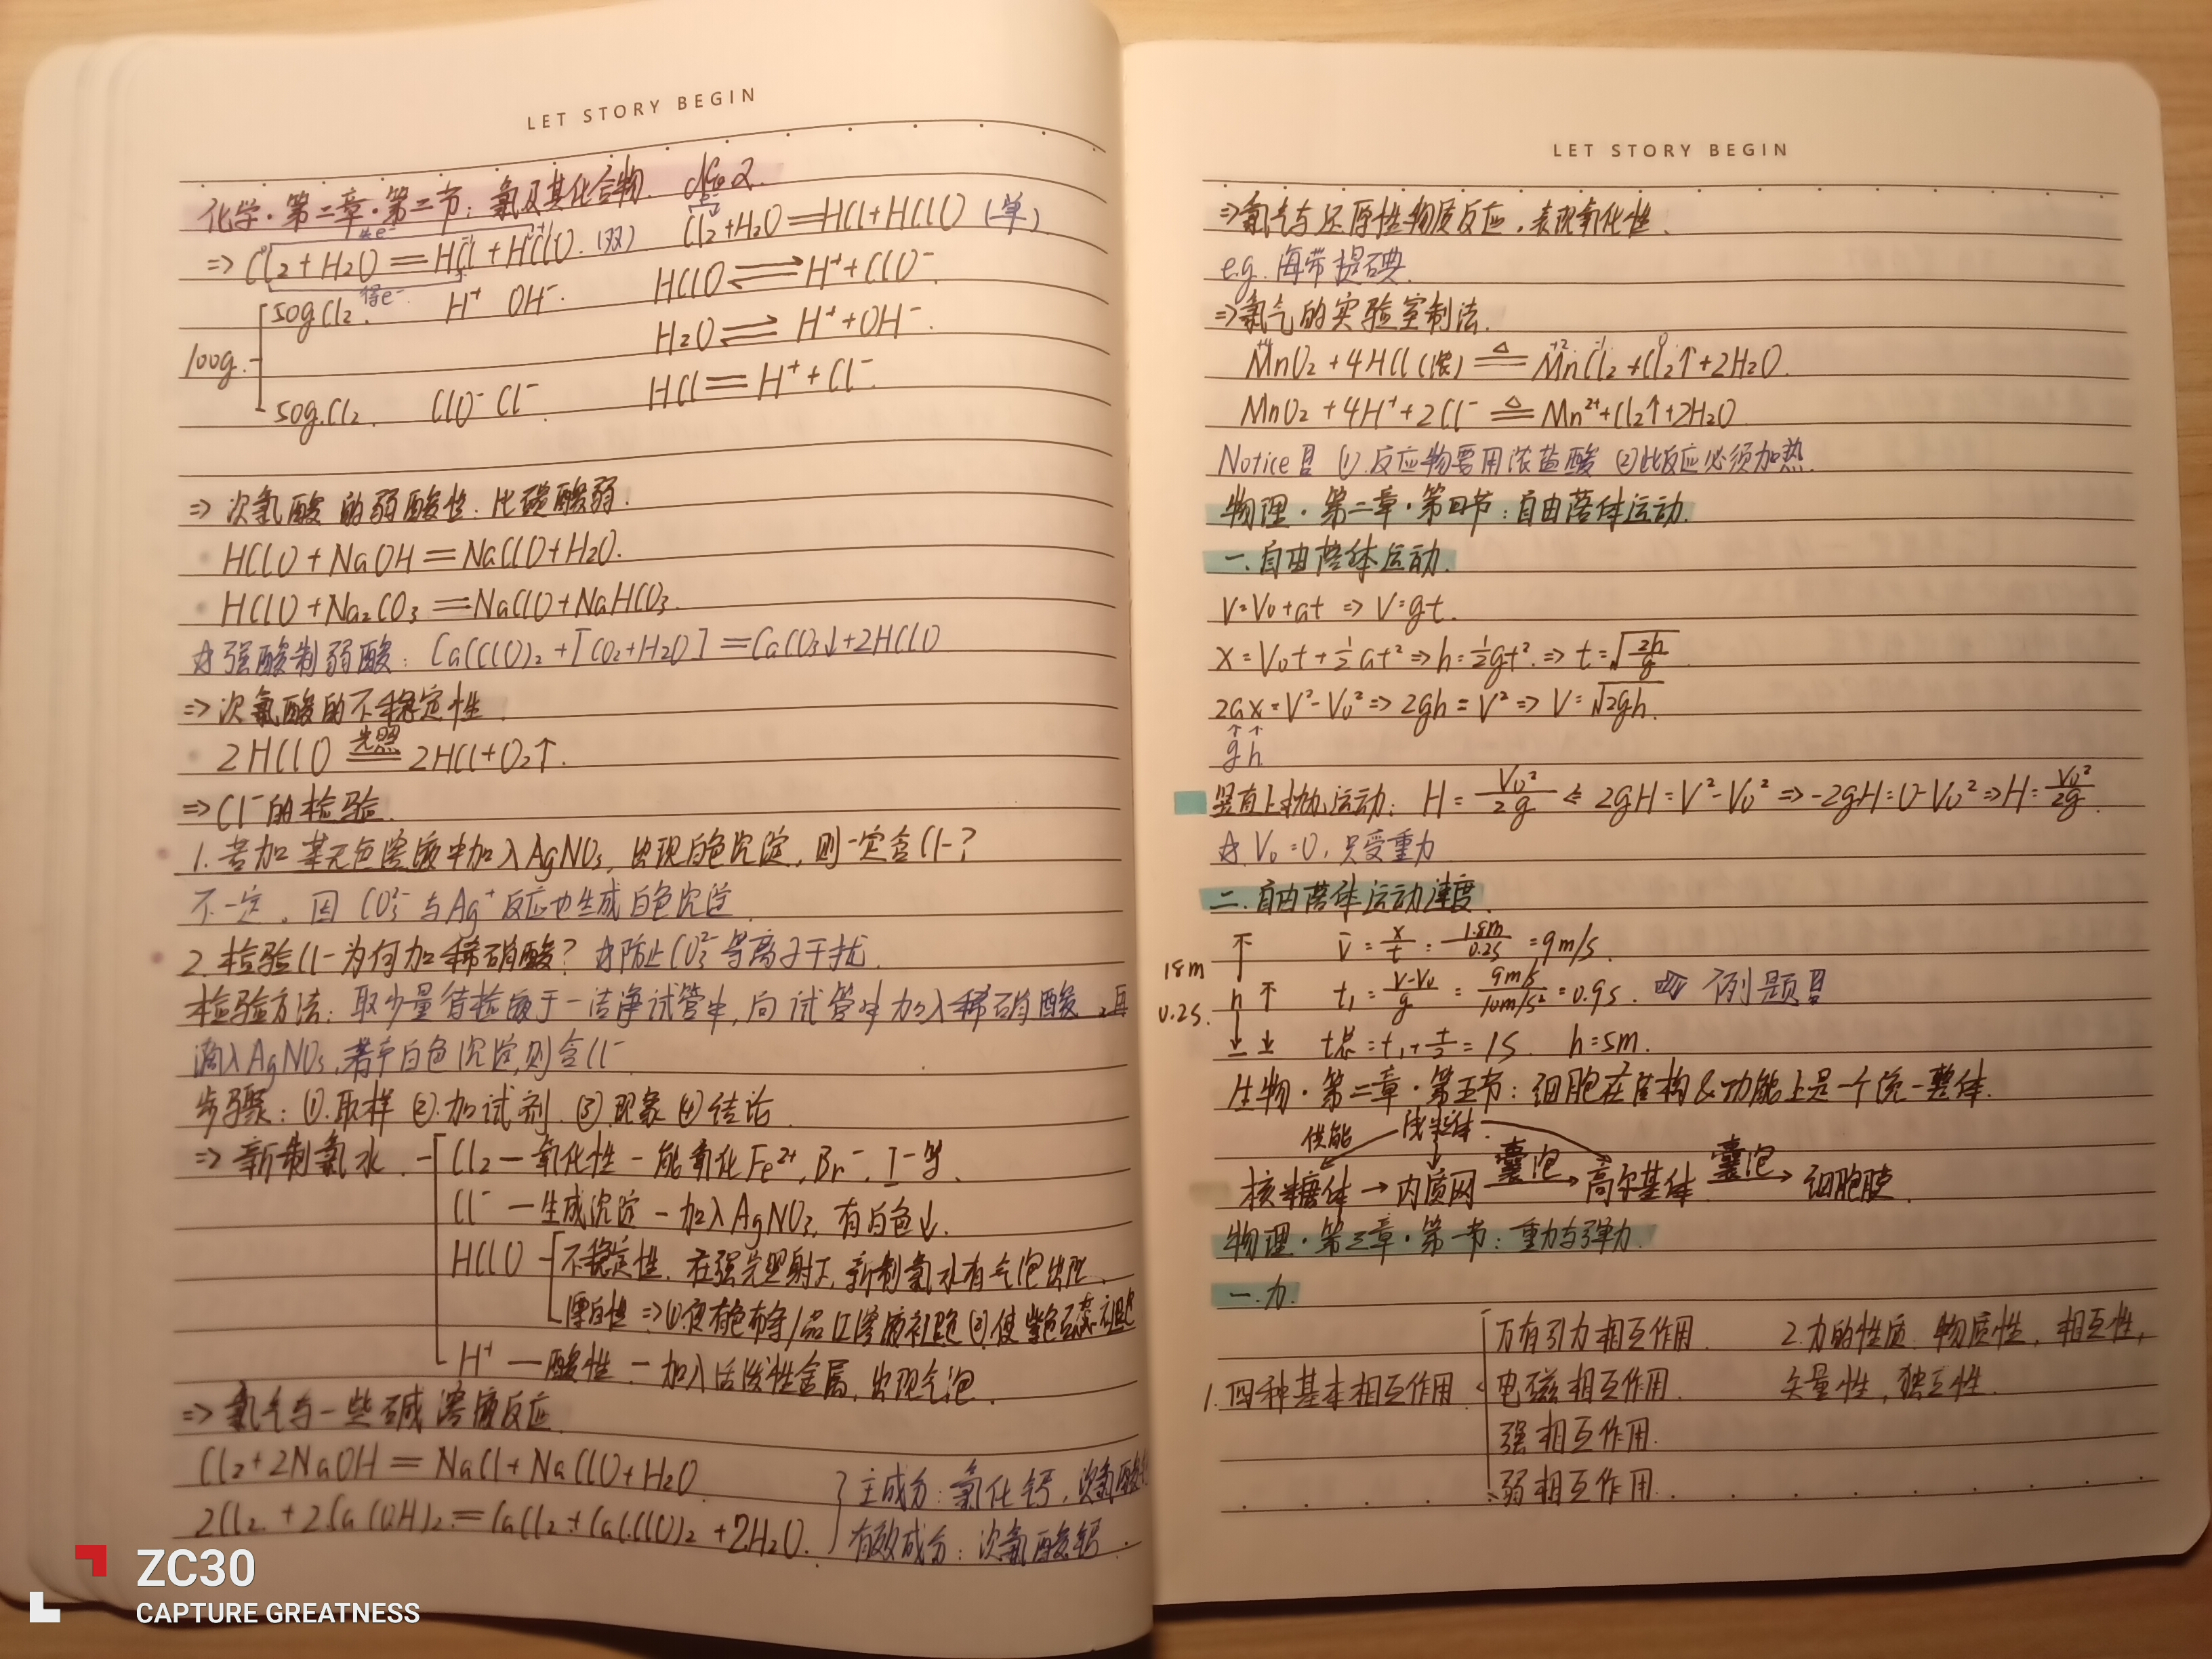 LET STORY BEGIN
化学·第二章·第二节:氯及其化合物. No2.
⇒ Cl₂+H₂O=HCl+HClO.(双) Cl₂+H₂O=HCl+HClO (单)
失e⁻
得e⁻
HClO⇌H⁺+ClO⁻
100g.
50gCl₂. H⁺ OH⁻.
H₂O⇌H⁺+OH⁻.
50g.Cl₂. ClO⁻ Cl⁻.
HCl=H⁺+Cl⁻.
⇒次氯酸的弱酸性:比碳酸弱.
HClO+NaOH=NaClO+H₂O.
HClO+Na₂CO₃=NaClO+NaHCO₃.
☆强酸制弱酸:Ca(ClO)₂+[CO₂+H₂O]=CaCO₃↓+2HClO
⇒次氯酸的不稳定性.
2HClO 光照 2HCl+O₂↑.
⇒Cl⁻的检验.
1.若加某无色溶液中加入AgNO₃,出现白色沉淀,则一定含Cl-?
不一定。因CO₃²⁻与Ag⁺反应也生成白色沉淀.
2.检验Cl-为何加稀硝酸?☆防止CO₃²⁻等离子干扰.
检验方法:取少量待检液于一洁净试管中,向试管中加入稀硝酸,再
滴入AgNO₃,若有白色沉淀,则含Cl⁻
步骤:①.取样②.加试剂.③.现象④.结论.
⇒新制氯水.
Cl₂—氧化性—能氧化Fe²⁺,Br⁻,I⁻等.
Cl⁻—生成沉淀—加入AgNO₃,有白色↓.
HClO
不稳定性.在强光照射下,新制氯水有气泡出现.
漂白性⇒①.使有色布条/品红溶液褪色②.使紫色石蕊褪色
H⁺—酸性—加入活泼性金属,出现气泡.
⇒氯气与一些碱溶液反应
Cl₂+2NaOH=NaCl+NaClO+H₂O.
2Cl₂+2Ca(OH)₂=CaCl₂+Ca(ClO)₂+2H₂O.
主成分:氯化钙,次氯酸
有效成分:次氯酸钙.
ZC30
CAPTURE GREATNESS
LET STORY BEGIN
⇒氯气与还原性物质反应,表现氧化性.
e.g.海带提碘.
⇒氯气的实验室制法.
+4 +2 -1 0
MnO₂+4HCl(浓) △ MnCl₂+Cl₂↑+2H₂O.
MnO₂+4H⁺+2Cl⁻ △ Mn²⁺+Cl₂↑+2H₂O
Notice ①.反应物要用浓盐酸 ②此反应必须加热.
物理·第二章·第四节:自由落体运动.
一.自由落体运动.
V=V₀+at ⇒ V=gt.
x=V₀t+½at²⇒h=½gt².⇒t=√(2h/g)
2ax=V²-V₀²⇒2gh=V²⇒V=√2gh.
↑ ↑
g h
竖直上抛运动: H=V₀²/2g ⇐ 2gH=V²-V₀²⇒-2gH=0-V₀²⇒H=V₀²/2g.
☆.V₀=0,只受重力
二.自由落体运动速度.
V̄=x/t=1.8m/0.2s=9m/s.
18m
h t₁=(V-V₀)/g=(9m/s)/(10m/s²)=0.9s. 例题
0.2s.
t总=t₁+t/2=1s. h=5m.
生物·第二章·第五节:细胞在结构&功能上是一个统一整体.
供能 线粒体.
核糖体→内质网 囊泡→高尔基体. 囊泡→细胞膜.
物理·第三章·第一节:重力与弹力.
一.力.
万有引力相互作用. 2.力的性质:物质性,相互性,
1.四种基本相互作用. 电磁相互作用. 矢量性,独立性.
强相互作用.
弱相互作用.